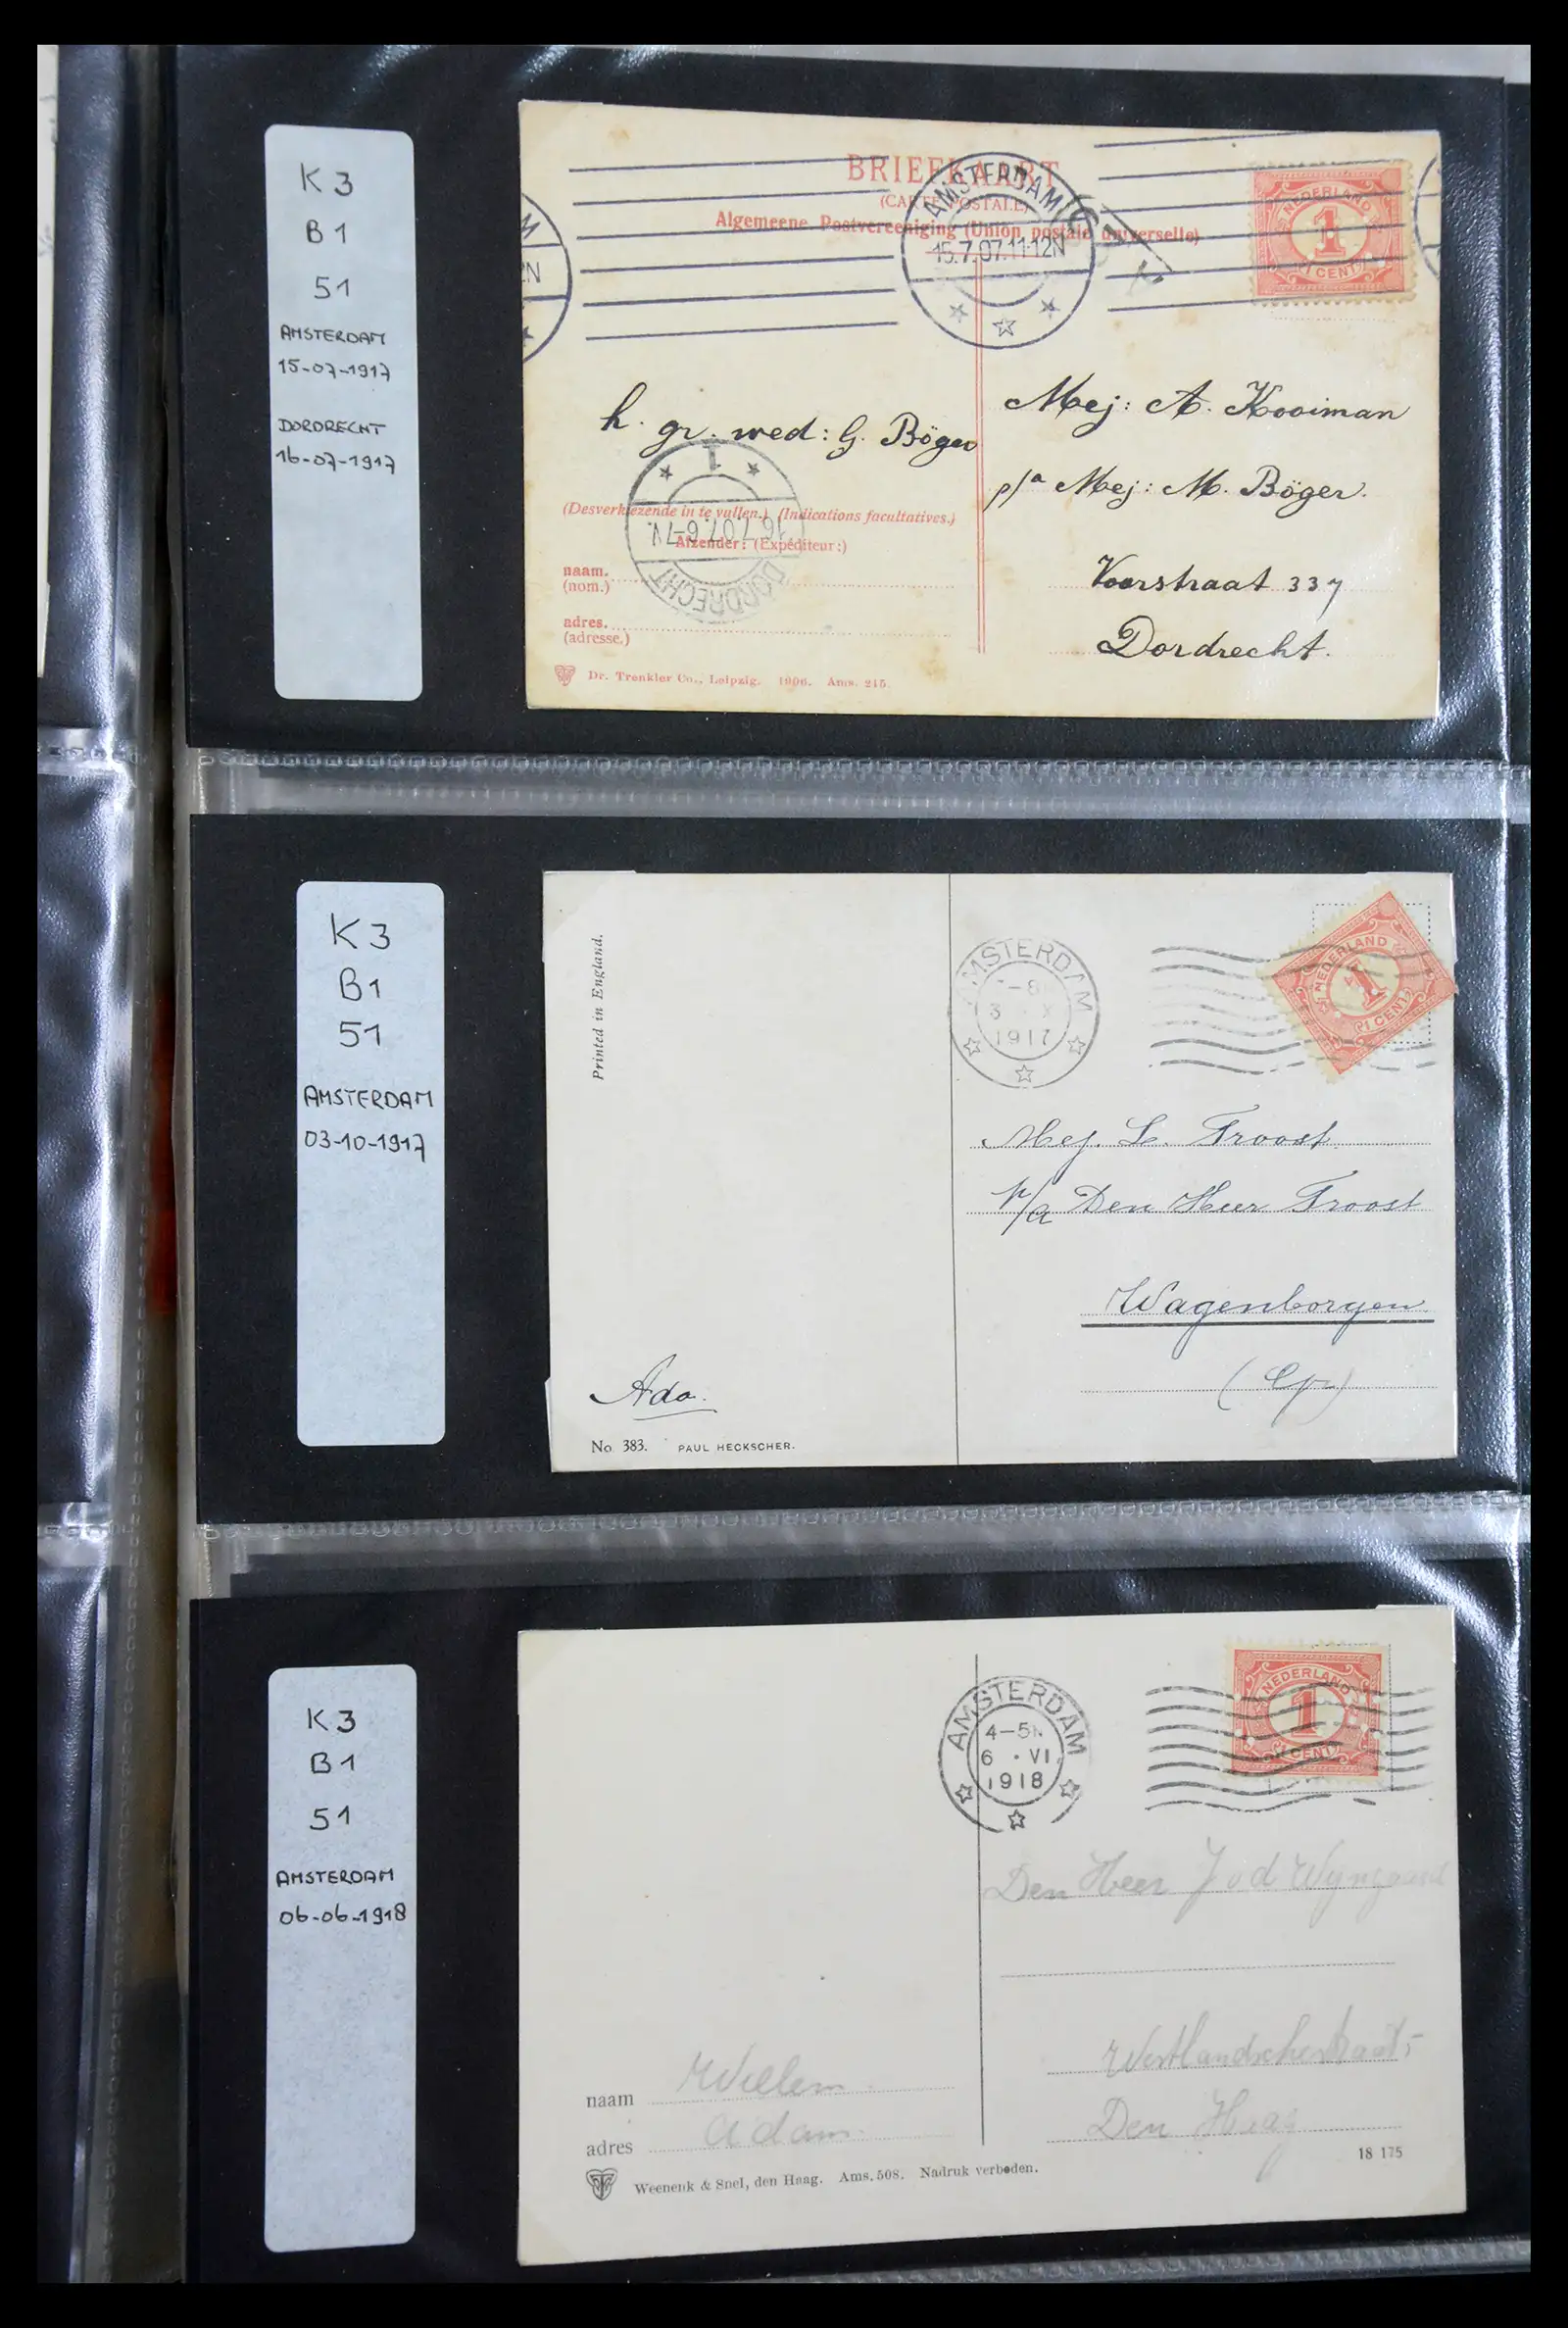 K3
B1
51
AMSTERDAM
15-07-1917
DORDRECHT
16-07-1917
BRIEFKAART
(CARTE POSTALE)
Algemeene Postvereeniging (Union postale universelle)
AMSTERDAM
15.7.07.11-12N
NEDERLAND
1
1 CENT
M
2N
h. gr. wed: G. Böger
Mej: A. Kooiman
p/a Mej: M. Böger.
Voorstraat 337
Dordrecht.
1
16.7.07.6-7N.
DORDRECHT
(Desverkiezende in te vullen.) (Indications facultatives.)
Afzender: (Expéditeur:)
naam.
(nom.)
adres.
(adresse.)
Dr. Trenkler Co., Leipzig. 1906. Ams. 215.
K3
B1
51
AMSTERDAM
03-10-1917
Printed in England.
AMSTERDAM
-8
3 · X
1917
NEDERLAND
1
1 CENT
Mej. L. Troost
p/a Den Heer Troost
Wagenborgen
Ado.
No. 383. PAUL HECKSCHER.
K3
B1
51
AMSTERDAM
06-06-1918
AMSTERDAM
4-5N
6 · VI
1918
NEDERLAND
1
1 CENT
Den Heer J v d Wyngaard
Westlandschestraat
Den Haag
naam Willem
adres Adam.
18 175
Weenenk & Snel, den Haag. Ams. 508. Nadruk verboden.